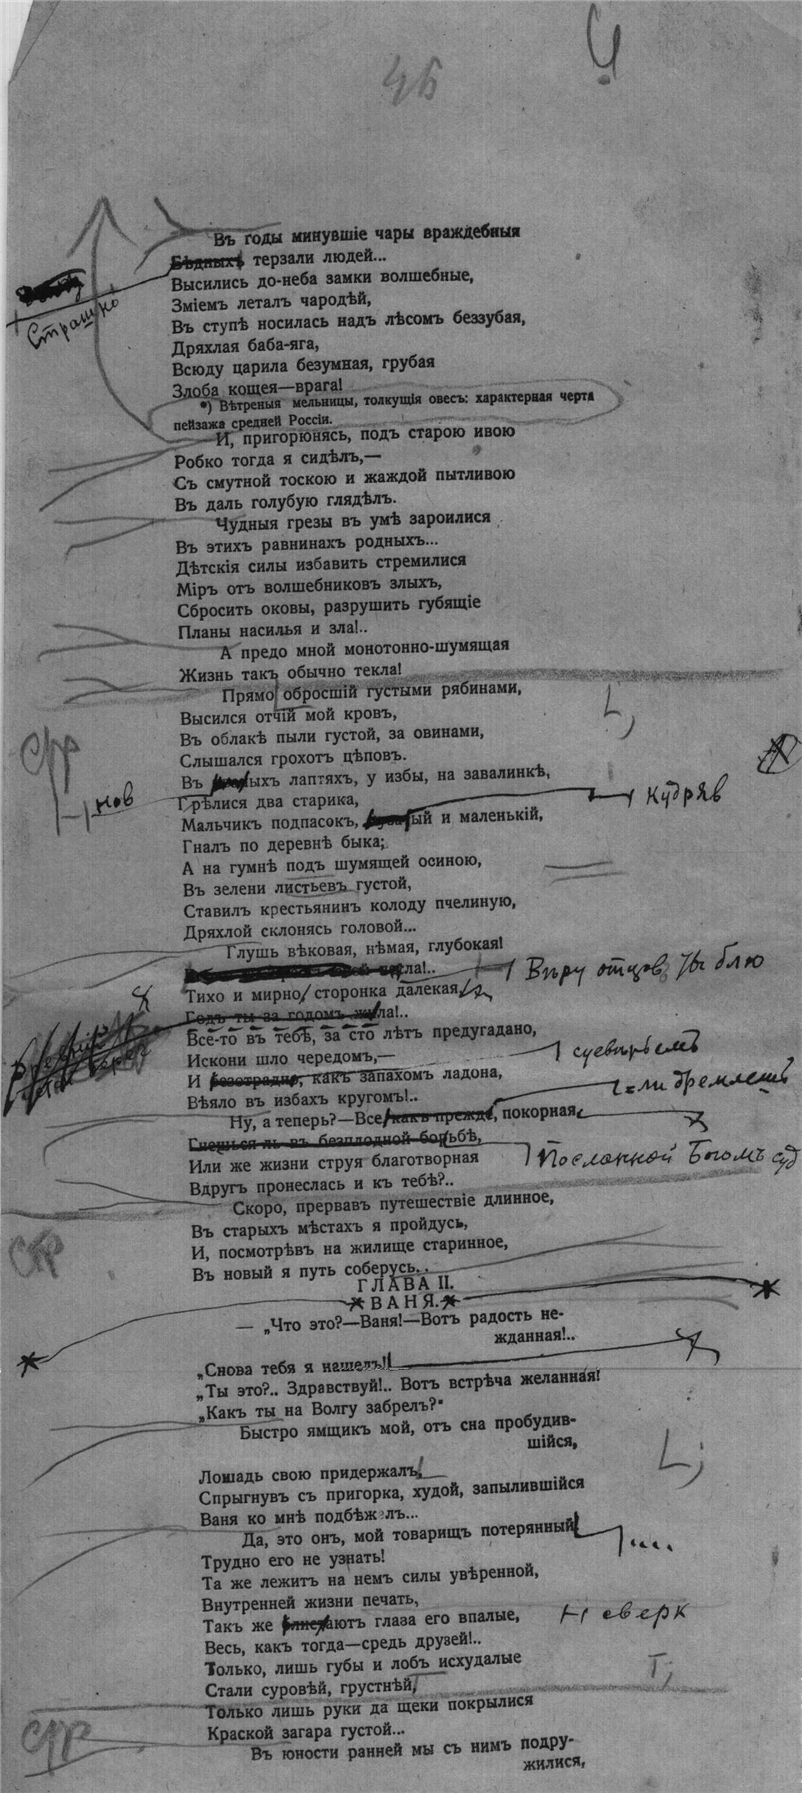 Въ годы минувшіе чары враждебныя
Страшно
Бѣдныхъ терзали людей...
Высились до-неба замки волшебные,
Зміемъ леталъ чародѣй,
Въ ступѣ носилась надъ лѣсомъ беззубая,
Дряхлая баба-яга,
Всюду царила безумная, грубая
Злоба кощея—врага!
*) Вѣтреныя мельницы, толкущія овесъ: характерная черта
пейзажа средней Россіи.
И, пригорюнясь, подъ старою ивою
Робко тогда я сидѣлъ,—
Съ смутной тоскою и жаждой пытливою
Въ даль голубую глядѣлъ.
Чудныя грезы въ умѣ зароилися
Въ этихъ равнинахъ родныхъ...
Дѣтскія силы избавить стремилися
Міръ отъ волшебниковъ злыхъ,
Сбросить оковы, разрушить губящіе
Планы насилья и зла!..
А предо мной монотонно-шумящая
Жизнь такъ обычно текла!
Прямо обросшій густыми рябинами,
Высился отчій мой кровъ,
Въ облакѣ пыли густой, за овинами,
Слышался грохотъ цѣповъ.
Въ ыхъ лаптяхъ, у избы, на завалинкѣ,
нов
Грѣлися два старика,
кудряв
Мальчикъ подпасокъ, ый и маленькій,
Гналъ по деревнѣ быка;
А на гумнѣ подъ шумящей осиною,
Въ зелени листьевъ густой,
Ставилъ крестьянинъ колоду пчелиную,
Дряхлой склонясь головой...
Глушь вѣковая, нѣмая, глубокая!
ла!.. Вѣру отцовъ ты блю
Тихо и мирно сторонка далекая
Годъ ты за годомъ жила!..
Все-то въ тебѣ, за сто лѣтъ предугадано,
Искони шло чередомъ,—
суевѣрьемъ
И безотрадно, какъ запахомъ ладона,
Вѣяло въ избахъ кругомъ!..
ли дремлешь
Ну, а теперь?—Все какъ прежде, покорная
Гнешься ль въ безплодной борьбѣ,
Посланной Богомъ суд
Или же жизни струя благотворная
Вдругъ пронеслась и къ тебѣ?..
Скоро, прервавъ путешествіе длинное,
Въ старыхъ мѣстахъ я пройдусь,
И, посмотрѣвъ на жилище старинное,
Въ новый я путь соберусь..
ГЛАВА II.
ВАНЯ.
— „Что это?—Ваня!—Вотъ радость не-
жданная!..
„Снова тебя я нашелъ!
„Ты это?.. Здравствуй!.. Вотъ встрѣча желанная!
„Какъ ты на Волгу забрелъ?"
Быстро ямщикъ мой, отъ сна пробудив-
шійся,
Лошадь свою придержалъ,
Спрыгнувъ съ пригорка, худой, запылившійся
Ваня ко мнѣ подбѣжалъ...
Да, это онъ, мой товарищъ потерянный
Трудно его не узнать!
Та же лежитъ на немъ силы увѣренной,
Внутренней жизни печать,
Такъ же блистаютъ глаза его впалые,
сверк
Весь, какъ тогда—средь друзей!..
Только, лишь губы и лобъ исхудалые
Стали суровѣй, грустнѣй,
Только лишь руки да щеки покрылися
Краской загара густой...
Въ юности ранней мы съ нимъ подру-
жилися,